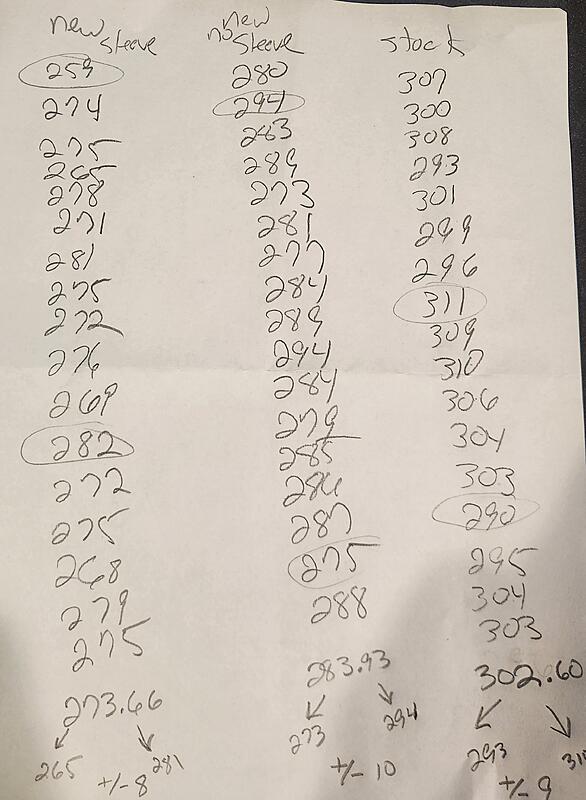 new
sleeve
259
274
275
265
278
271
281
275
272
276
269
282
272
275
268
279
275
273.66
265 +/- 8 281
new
no sleeve
280
294
283
289
273
281
277
284
289
294
284
279
285
286
287
275
288
283.93
273 294
+/- 10
stock
307
300
308
293
301
299
296
311
309
310
306
304
303
290
295
304
303
302.60
293
+/- 9